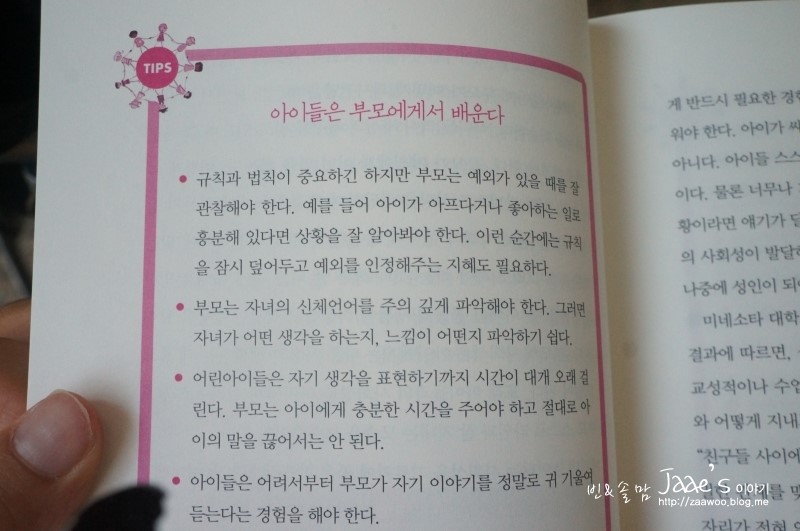 TIPS
아이들은 부모에게서 배운다
• 규칙과 법칙이 중요하긴 하지만 부모는 예외가 있을 때를 잘
관찰해야 한다. 예를 들어 아이가 아프다거나 좋아하는 일로
흥분해 있다면 상황을 잘 알아봐야 한다. 이런 순간에는 규칙
을 잠시 덮어두고 예외를 인정해주는 지혜도 필요하다.
• 부모는 자녀의 신체언어를 주의 깊게 파악해야 한다. 그러면
자녀가 어떤 생각을 하는지, 느낌이 어떤지 파악하기 쉽다.
• 어린아이들은 자기 생각을 표현하기까지 시간이 대개 오래 걸
린다. 부모는 아이에게 충분한 시간을 주어야 하고 절대로 아
이의 말을 끊어서는 안 된다.
• 아이들은 어려서부터 부모가 자기 이야기를 정말로 귀 기울여
듣는다는 경험을 해야 한다.
게 반드시 필요한 경험
워야 한다. 아이가 싸
아니다. 아이들 스스
이다. 물론 너무나
황이라면 얘기가 달
의 사회성이 발달하
나중에 성인이 되어
미네소타 대학
결과에 따르면,
교성적이나 수업
와 어떻게 지내
"친구들 사이에
를 맺
자리가 적혀
빈&솔맘 Jaae's 이야기
http://zaawoo.blog.me